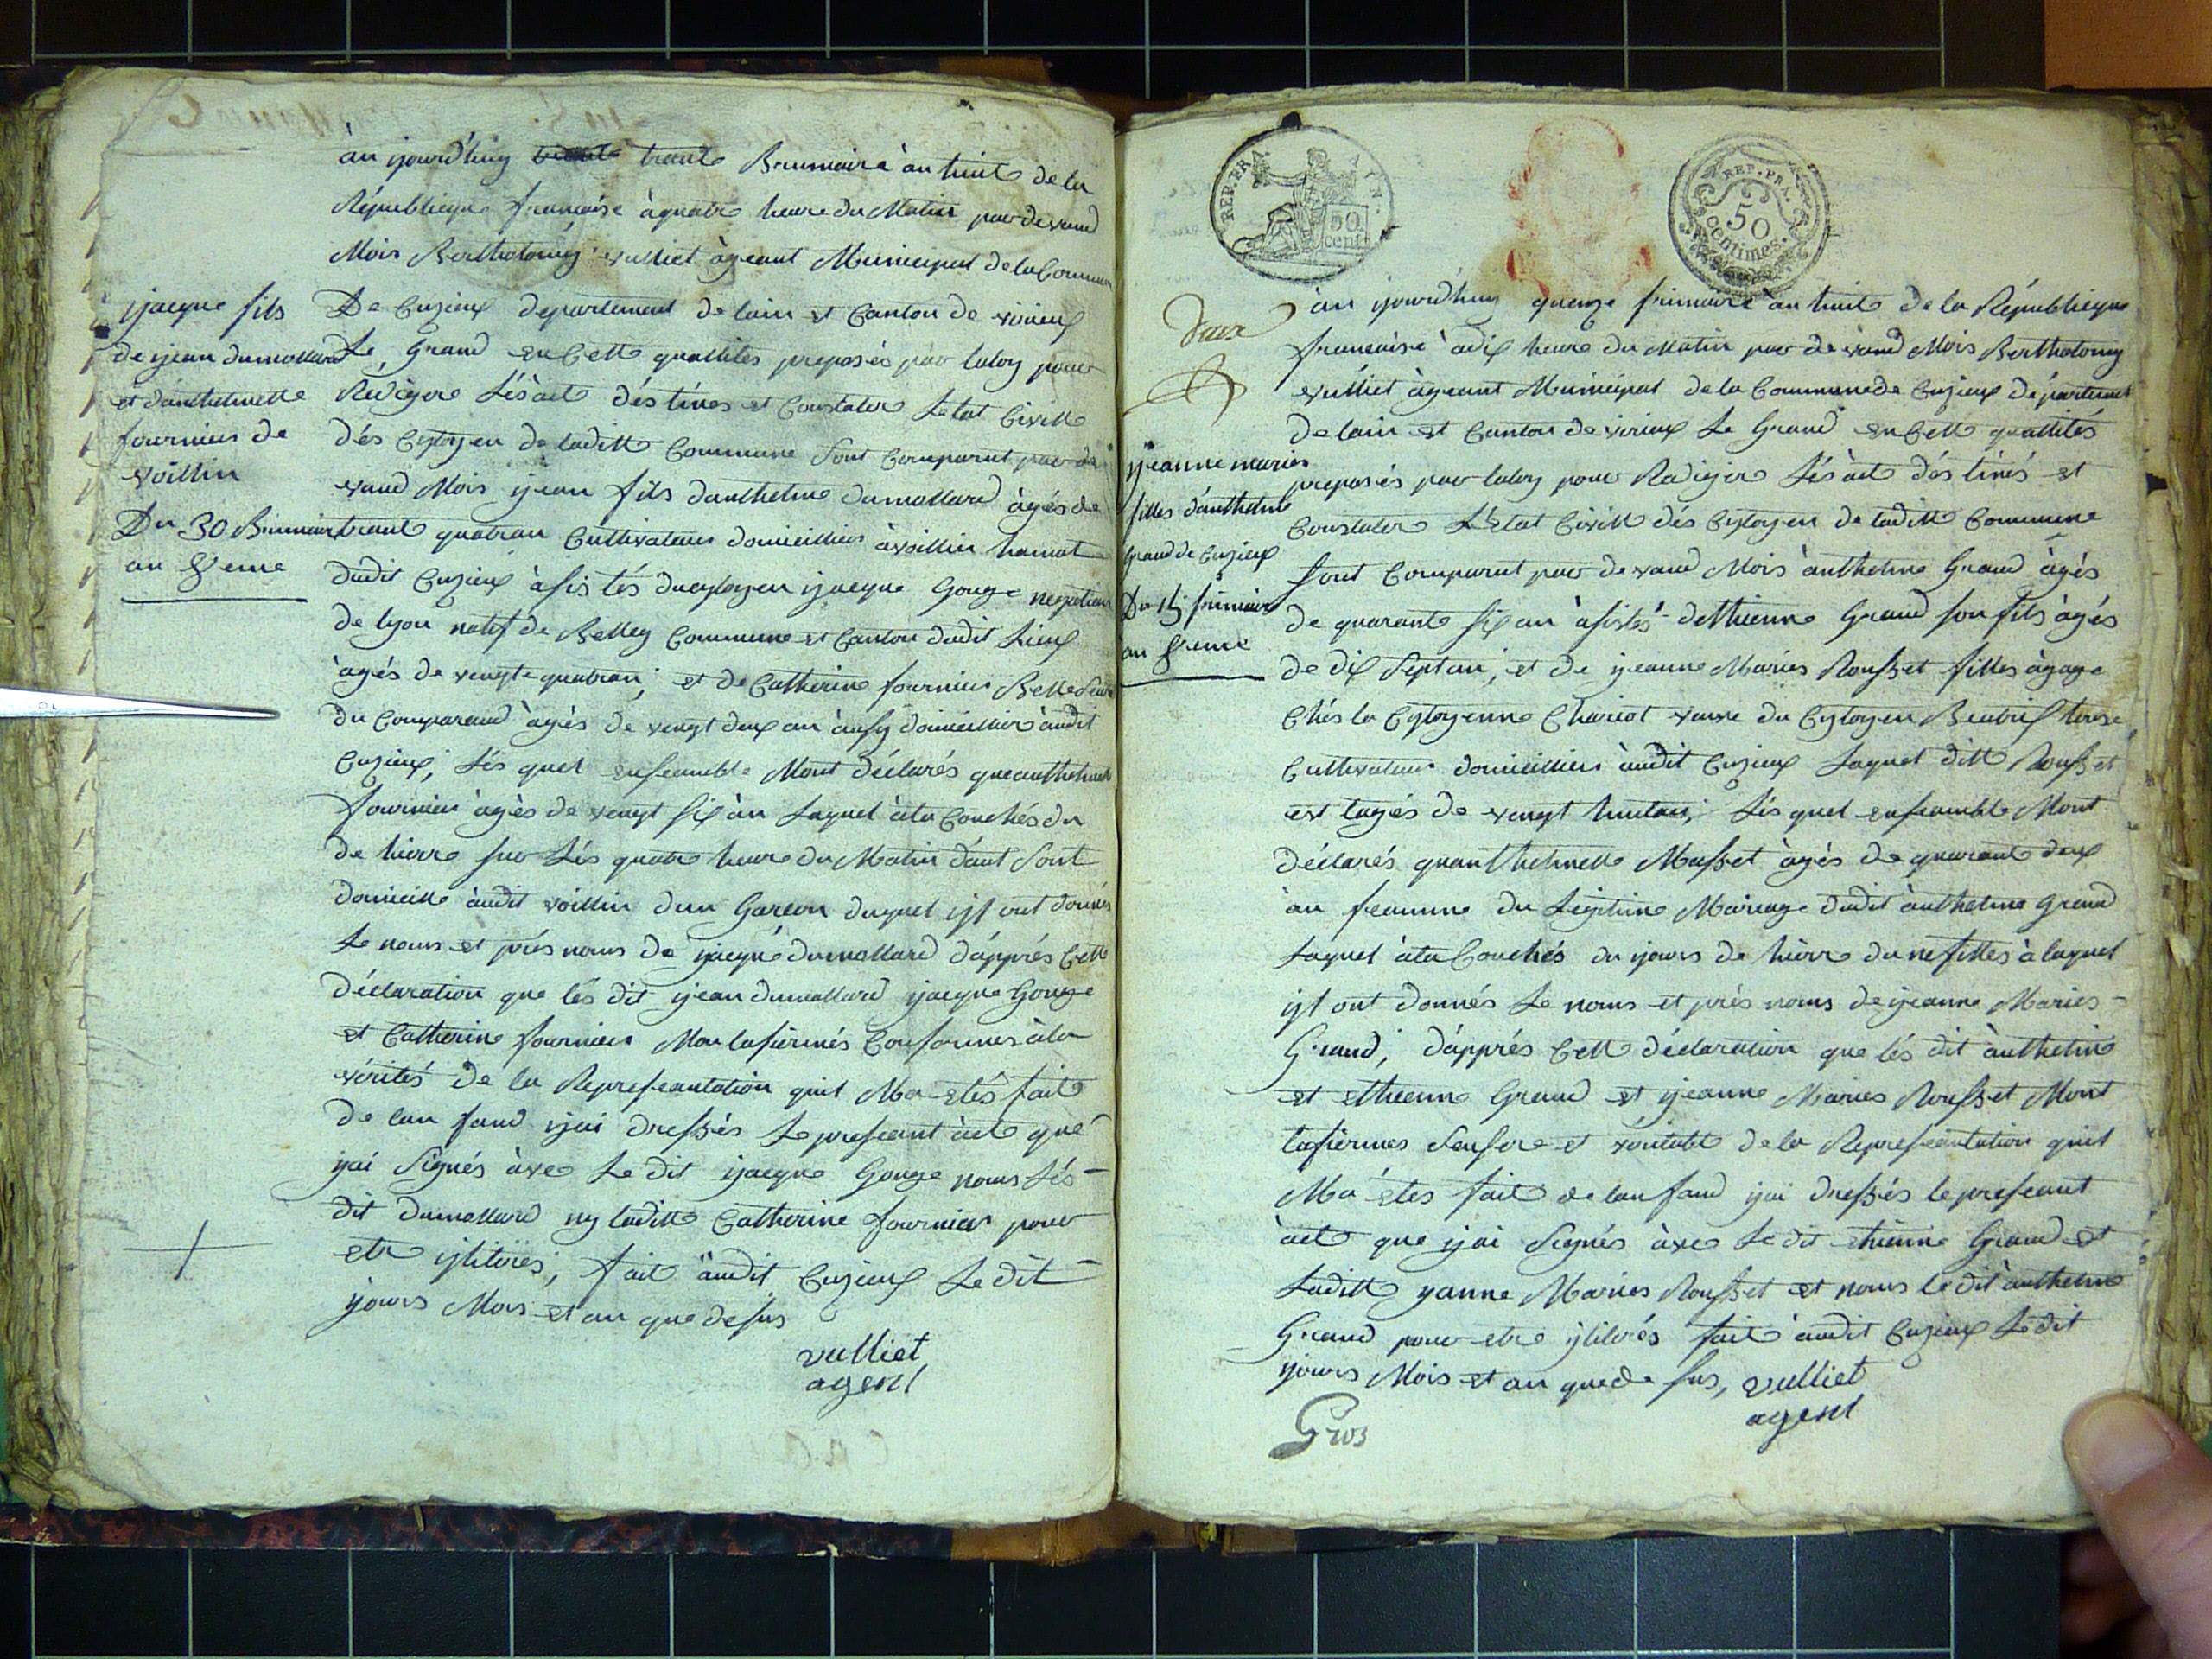 àu yjourd'huy trante Brumaire àn huit de la
République francaise àquatre heure du Matin par devand
Mois Berthelomy vulliet àgeant Municipal de la Commune
De Cuzieux departement de lain et Canton de virieux
Le Grand en Cette quallités preposés par laloy pour
Redigere Lés àcte déstinés et Constater Letat Civille
dés Cytoyen de laditte Commune sont Comparut par de
vand Mois yjean fils danthelme dumollard àgés de
trante quatran Cultivateur domicillier àvoillin hamot
dudit Cuzieux àsistés ducytoyen yjacque Gouge negotian
de lyon natif de Belley Commune et Canton dudit Lieux
àgés de vengtequatran; et de Catherine fournier Belle Seur
du Comparand àgés de vengt deux an àusy domicillier àudit
Cuzieux, Lés quel enseamble Mont déclarés queanthelmette
fournier àgés de vengt six àn Laquel àta Couchés du
de hierre sur Lés quatre heure du Matin dant Sont
domicille àudit voillin dun Garcon duquel yl out donnés
Le noms et prés noms de yjacque dumollard dápprés Cette
déclaration que lés dit yjean dumollard yjacque Gouge
et Catherine fournier Mon lafirmés Conformes àla
vérités de la Represeantation quil Ma etés faite
de lan fand yjai dressés Le preseant àcte que
yjai Signés àvec Le dit yjacque Gouge noms Lés
dit dumollard ny laditte Catherine fournier pour
etre ylitérés; fait àudit Cuzieux Le dit
yjours Mois et an que desus
vulliet
agent
yjacque fils
de yjean dumollard
et dánthelmette
fournier de
voillin
Du 30 Brumaire
an 8eme
REP. FRA.
50
cent.
REP. FRA.
50
centimes.
àu yjourd'huy quenze frimaire àn huit de la République
francaise àdix heure du Matin par de vand Mois Berthelomy
vulliet àgeant Municipal de la Commune de Cuzieux département
de lain et Canton de virieux Le Grand en Cette quallités
preposés par laloy pour Redigere Lés àcte déstinés et
Constater L'Etat Civille dés Cytoyen de laditte Commune
sont Comparut par de vand Mois ànthelme Grand àgés
de quarante six an àsistés dethienne Grand son fils àgés
de dix Septan; et de yjeanne Maries Rousset filles àgage
Chés la Cytoyenne Chariot veuve du Cytoyen Beatrix
Cultivateur domicillier àudit Cuzieux Laquel ditte Rousset
est lagés de vengt huitan; Lés quel enseamble Mont
déclarés quanthelmette Masset àgés de quarante deux
àn feamme du Legitime Mariage dudit ànthelme Grand
Laquel àta Couchés du yjours de hierre dune filles à laquel
yl ont donnés Le noms et prés noms de yjeanne Maries
Grand; dápprés Cette déclaration que lés dit ànthelme
et ethienne Grand et yjeanne Maries Rousset Mont
lafirmes Sensere et véritable de la Represeantation quil
Ma etes faite de lan fand yjai dressés le preseant
àcte que yjai Signés àvec Le dit ethienne Grand et
Laditte yanne Maries Rousset et noms le dit ànthelme
Grand pour etre ylitérés fait àudit Cuzieux Le dit
yjours Mois et an quede sus, vulliet
agent
Gros
yjeanne maries
filles dánthelme
Grand de Cuzieux
Du 15 frimaire
an 8eme